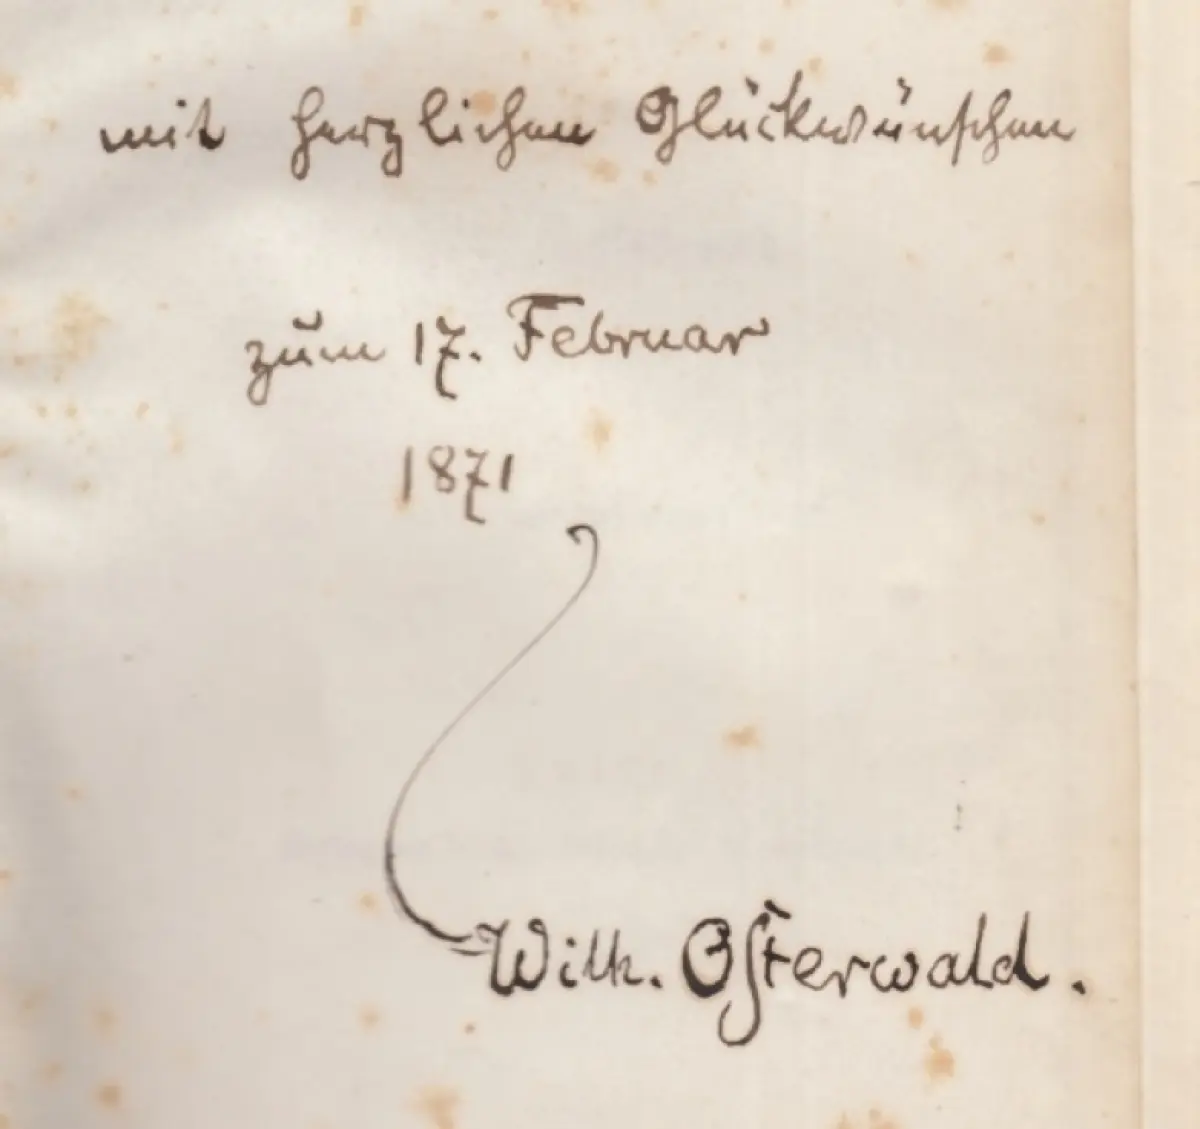 mit herzlichen Glückwünschen
zum 17. Februar
1871
Wilh. Osterwald.